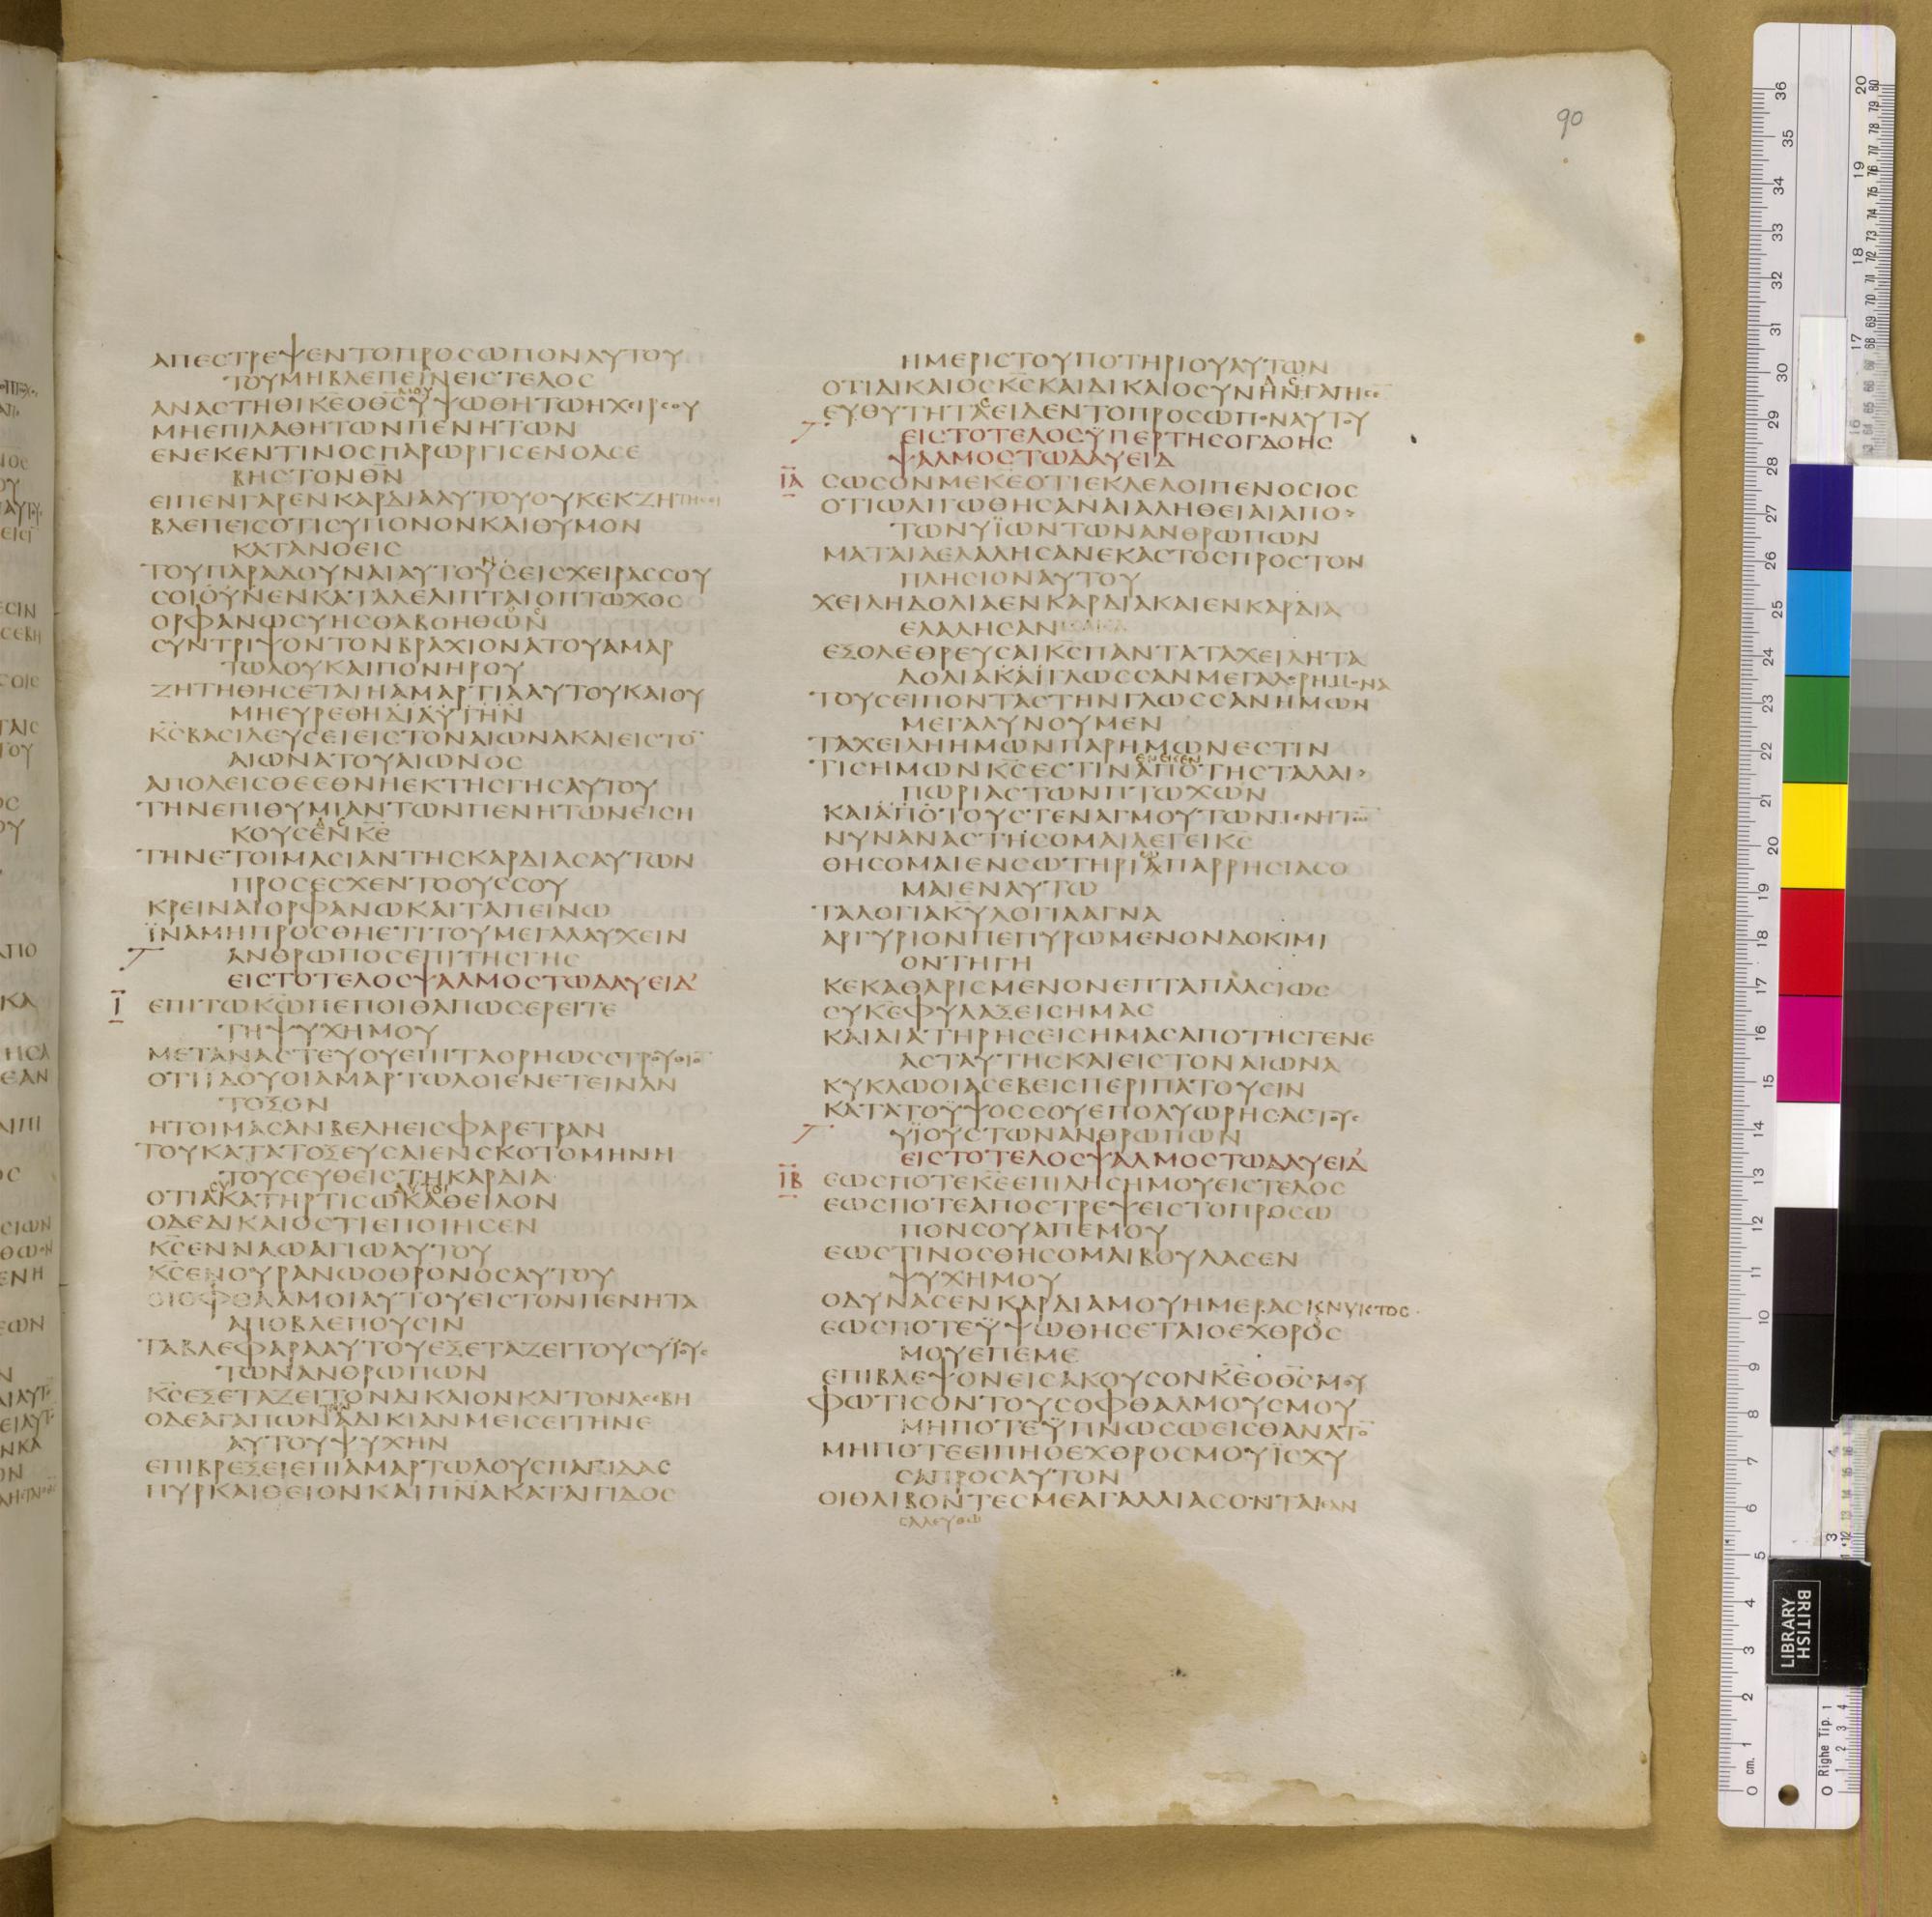 90
ΑΠΕϹΤΡΕΨΕΝΤΟΠΡΟϹΩΠΟΝΑΥΤΟΥ
ΤΟΥΜΗΒΛΕΠΕΙΝΕΙϹΤΕΛΟϹ
ΑΝΑϹΤΗΘΙΚΕΟΘϹΥΨΩΘΗΤΩΗΧΕΙΡϹΟΥ
ΜΗΕΠΙΛΑΘΗΤΩΝΠΕΝΗΤΩΝ
ΕΝΕΚΕΝΤΙΝΟϹΠΑΡΩΡΓΙϹΕΝΟΑϹΕ
ΒΗϹΤΟΝΘΝ
ΕΙΠΕΝΓΑΡΕΝΚΑΡΔΙΑΑΥΤΟΥΟΥΚΕΚΖΗΤΗϹΕΙ
ΒΛΕΠΕΙϹΟΤΙϹΥΠΟΝΟΝΚΑΙΘΥΜΟΝ
ΚΑΤΑΝΟΕΙϹ
ΤΟΥΠΑΡΑΔΟΥΝΑΙΑΥΤΟΥϹΕΙϹΧΕΙΡΑϹϹΟΥ
ϹΟΙΟΥΝΕΝΚΑΤΑΛΕΛΙΠΤΑΙΟΠΤΩΧΟϹ
ΟΡΦΑΝΩϹΥΗϹΘΑΒΟΗΘΩΝ
ϹΥΝΤΡΙΨΟΝΤΟΝΒΡΑΧΙΟΝΑΤΟΥΑΜΑΡ
ΤΩΛΟΥΚΑΙΠΟΝΗΡΟΥ
ΖΗΤΗΘΗϹΕΤΑΙΗΑΜΑΡΤΙΑΑΥΤΟΥΚΑΙΟΥ
ΜΗΕΥΡΕΘΗΔΙΑΥΤΗΝ
ΚϹΒΑϹΙΛΕΥϹΕΙΕΙϹΤΟΝΑΙΩΝΑΚΑΙΕΙϹΤΟ
ΑΙΩΝΑΤΟΥΑΙΩΝΟϹ
ΑΠΟΛΕΙϹΘΕΕΘΝΗΕΚΤΗϹΓΗϹΑΥΤΟΥ
ΤΗΝΕΠΙΘΥΜΙΑΝΤΩΝΠΕΝΗΤΩΝΕΙϹΗ
ΚΟΥϹΕΝΚΕ
ΤΗΝΕΤΟΙΜΑϹΙΑΝΤΗϹΚΑΡΔΙΑϹΑΥΤΩΝ
ΠΡΟϹΕϹΧΕΝΤΟΟΥϹϹΟΥ
ΚΡΕΙΝΑΙΟΡΦΑΝΩΚΑΙΤΑΠΕΙΝΩ
ΪΝΑΜΗΠΡΟϹΘΗΕΤΙΤΟΥΜΕΓΑΛΑΥΧΕΙΝ
ΑΝΘΡΩΠΟϹΕΠΙΤΗϹΓΗϹ
ΕΙϹΤΟΤΕΛΟϹΨΑΛΜΟϹΤΩΔΑΥΕΙΔ
Ι ΕΠΙΤΩΚΩΠΕΠΟΙΘΑΠΩϹΕΡΕΙΤΕ
ΤΗΨΥΧΗΜΟΥ
ΜΕΤΑΝΑϹΤΕΥΟΥΕΠΙΤΑΟΡΗΩϹϹΤΡΟΥΘΙΟ
ΟΤΙΙΔΟΥΟΙΑΜΑΡΤΩΛΟΙΕΝΕΤΕΙΝΑΝ
ΤΟΞΟΝ
ΗΤΟΙΜΑϹΑΝΒΕΛΗΕΙϹΦΑΡΕΤΡΑΝ
ΤΟΥΚΑΤΑΤΟΞΕΥϹΑΙΕΝϹΚΟΤΟΜΗΝΗ
ΤΟΥϹΕΥΘΕΙϹΤΗΚΑΡΔΙΑ
ΟΤΙΑΚΑΤΗΡΤΙϹΩΚΑΘΕΙΛΟΝ
ΟΔΕΔΙΚΑΙΟϹΤΙΕΠΟΙΗϹΕΝ
ΚϹΕΝΝΑΩΑΓΙΩΑΥΤΟΥ
ΚϹΕΝΟΥΡΑΝΩΟΘΡΟΝΟϹΑΥΤΟΥ
ΟΙΟΦΘΑΛΜΟΙΑΥΤΟΥΕΙϹΤΟΝΠΕΝΗΤΑ
ΑΠΟΒΛΕΠΟΥϹΙΝ
ΤΑΒΛΕΦΑΡΑΑΥΤΟΥΕΞΕΤΑΖΕΙΤΟΥϹΥΪΟΥϹ
ΤΩΝΑΝΘΡΩΠΩΝ
ΚϹΕΞΕΤΑΖΕΙΤΟΝΔΙΚΑΙΟΝΚΑΙΤΟΝΑϹΕΒΗ
ΟΔΕΑΓΑΠΩΝΑΔΙΚΙΑΝΜΕΙϹΕΙΤΗΝΕ
ΑΥΤΟΥΨΥΧΗΝ
ΕΠΙΒΡΕΞΕΙΕΠΙΑΜΑΡΤΩΛΟΥϹΠΑΓΙΔΑϹ
ΠΥΡΚΑΙΘΕΙΟΝΚΑΙΠΝΑΚΑΤΑΙΓΙΔΟϹ
ΗΜΕΡΙϹΤΟΥΠΟΤΗΡΙΟΥΑΥΤΩΝ
ΟΤΙΔΙΚΑΙΟϹΚϹΚΑΙΔΙΚΑΙΟϹΥΝΗΝΓΑΠΗϹΕ
ΕΥΘΥΤΗΤΑΕΙΔΕΝΤΟΠΡΟϹΩΠΟΝΑΥΤΟΥ
ΕΙϹΤΟΤΕΛΟϹΫΠΕΡΤΗϹΟΓΔΟΗϹ
ΨΑΛΜΟϹΤΩΔΑΥΕΙΔ
ΙΑ ϹΩϹΟΝΜΕΚΕΟΤΙΕΚΛΕΛΟΙΠΕΝΟϹΙΟϹ
ΟΤΙΩΛΙΓΩΘΗϹΑΝΑΙΑΛΗΘΕΙΑΙΑΠΟ
ΤΩΝΥΪΩΝΤΩΝΑΝΘΡΩΠΩΝ
ΜΑΤΑΙΑΕΛΑΛΗϹΑΝΕΚΑϹΤΟϹΠΡΟϹΤΟΝ
ΠΛΗϹΙΟΝΑΥΤΟΥ
ΧΕΙΛΗΔΟΛΙΑΕΝΚΑΡΔΙΑΚΑΙΕΝΚΑΡΔΙΑ
ΕΛΑΛΗϹΑΝ
ΕΞΟΛΕΘΡΕΥϹΑΙΚϹΠΑΝΤΑΤΑΧΕΙΛΗΤΑ
ΔΟΛΙΑΚΑΙΓΛΩϹϹΑΝΜΕΓΑΛΟΡΗΜΟΝΑ
ΤΟΥϹΕΙΠΟΝΤΑϹΤΗΝΓΛΩϹϹΑΝΗΜΩΝ
ΜΕΓΑΛΥΝΟΥΜΕΝ
ΤΑΧΕΙΛΗΗΜΩΝΠΑΡΗΜΩΝΕϹΤΙΝ
ΤΙϹΗΜΩΝΚϹΕϹΤΙΝΑΠΟΤΗϹΤΑΛΑΙ
ΠΩΡΙΑϹΤΩΝΠΤΩΧΩΝ
ΚΑΙΑΠΟΤΟΥϹΤΕΝΑΓΜΟΥΤΩΝΠΕΝΗΤΩ
ΝΥΝΑΝΑϹΤΗϹΟΜΑΙΛΕΓΕΙΚϹ
ΘΗϹΟΜΑΙΕΝϹΩΤΗΡΙΑΠΑΡΡΗϹΙΑϹΟ
ΜΑΙΕΝΑΥΤΩ
ΤΑΛΟΓΙΑΚΥΛΟΓΙΑΑΓΝΑ
ΑΡΓΥΡΙΟΝΠΕΠΥΡΩΜΕΝΟΝΔΟΚΙΜΙ
ΟΝΤΗΓΗ
ΚΕΚΑΘΑΡΙϹΜΕΝΟΝΕΠΤΑΠΛΑϹΙΩϹ
ϹΥΚΕΦΥΛΑΞΕΙϹΗΜΑϹ
ΚΑΙΔΙΑΤΗΡΗϹΕΙϹΗΜΑϹΑΠΟΤΗϹΓΕΝΕ
ΑϹΤΑΥΤΗϹΚΑΙΕΙϹΤΟΝΑΙΩΝΑ
ΚΥΚΛΩΟΙΑϹΕΒΕΙϹΠΕΡΙΠΑΤΟΥϹΙΝ
ΚΑΤΑΤΟΥΨΟϹϹΟΥΕΠΟΛΥΩΡΗϹΑϹΤΟΥϹ
ΥΪΟΥϹΤΩΝΑΝΘΡΩΠΩΝ
ΕΙϹΤΟΤΕΛΟϹΨΑΛΜΟϹΤΩΔΑΥΕΙΔ
ΙΒ ΕΩϹΠΟΤΕΚΕΕΠΙΛΗϹΗΜΟΥΕΙϹΤΕΛΟϹ
ΕΩϹΠΟΤΕΑΠΟϹΤΡΕΨΕΙϹΤΟΠΡΟϹΩ
ΠΟΝϹΟΥΑΠΕΜΟΥ
ΕΩϹΤΙΝΟϹΘΗϹΟΜΑΙΒΟΥΛΑϹΕΝ
ΨΥΧΗΜΟΥ
ΟΔΥΝΑϹΕΝΚΑΡΔΙΑΜΟΥΗΜΕΡΑϹΚΝΥΚΤΟϹ
ΕΩϹΠΟΤΕΫΨΩΘΗϹΕΤΑΙΟΕΧΘΡΟϹ
ΜΟΥΕΠΕΜΕ
ΕΠΙΒΛΕΨΟΝΕΙϹΑΚΟΥϹΟΝΚΕΟΘϹΜΟΥ
ΦΩΤΙϹΟΝΤΟΥϹΟΦΘΑΛΜΟΥϹΜΟΥ
ΜΗΠΟΤΕΫΠΝΩϹΩΕΙϹΘΑΝΑΤΟ
ΜΗΠΟΤΕΕΙΠΗΟΕΧΘΡΟϹΜΟΥΪϹΧΥ
ϹΑΠΡΟϹΑΥΤΟΝ
ΟΙΘΛΙΒΟΝΤΕϹΜΕΑΓΑΛΛΙΑϹΟΝΤΑΙΕΑΝ
ϹΑΛΕΥΘΩ
BRITISH
LIBRARY
cm.
Righe Tip.